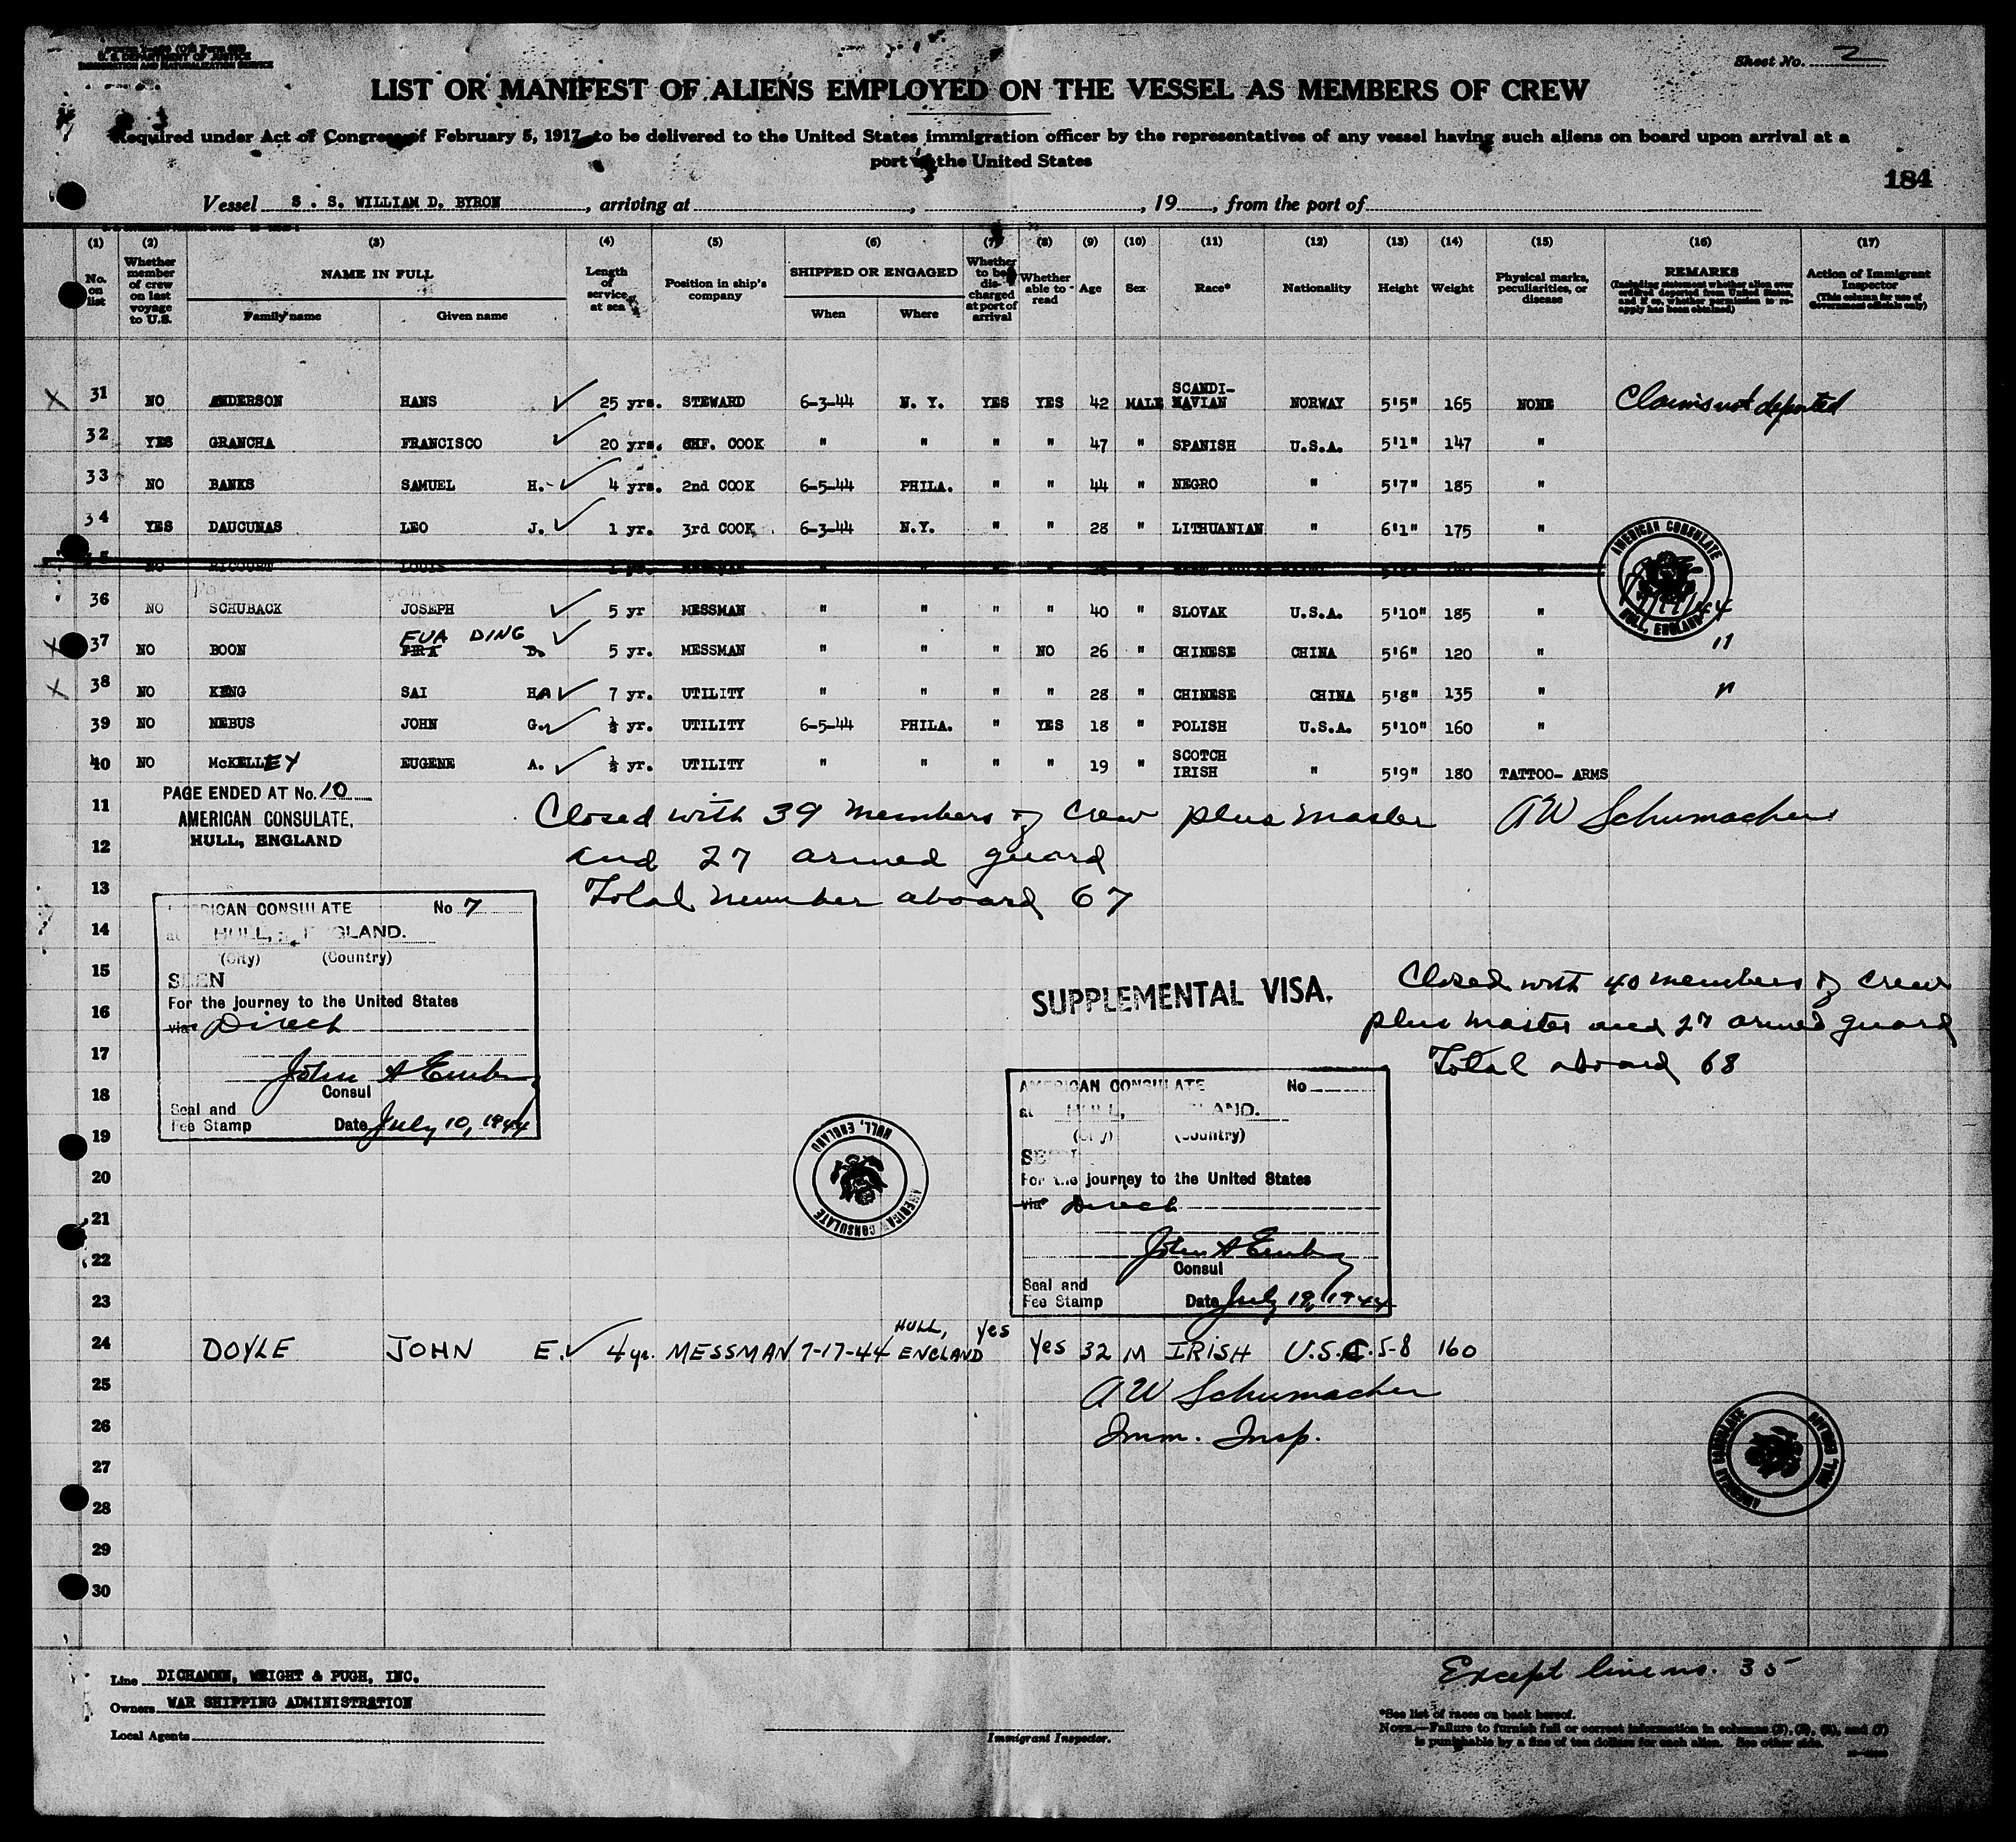 U. S. DEPARTMENT OF JUSTICE
IMMIGRATION AND NATURALIZATION SERVICE
Sheet No. 2
LIST OR MANIFEST OF ALIENS EMPLOYED ON THE VESSEL AS MEMBERS OF CREW
Required under Act of Congress of February 5, 1917, to be delivered to the United States immigration officer by the representatives of any vessel having such aliens on board upon arrival at a
port of the United States
184
Vessel S. S. WILLIAM D. BYRON, arriving at , , 19 , from the port of
(1) (2) (3) (4) (5) (6) (7) (8) (9) (10) (11) (12) (13) (14) (15) (16) (17)
No. on list
Whether member of crew on last voyage to U.S.
NAME IN FULL
Family name Given name
Length of service at sea
Position in ship's company
SHIPPED OR ENGAGED
When Where
Whether to be discharged at port of arrival
Whether able to read
Age
Sex
Race*
Nationality
Height
Weight
Physical marks, peculiarities, or disease
REMARKS
(Including statement whether alien ever ordered deported from United States, and if so, whether permission to reapply has been obtained)
Action of Immigrant Inspector
(This column for use of Government officials only)
X 31 NO ANDERSON HANS ✓ 25 yrs. STEWARD 6-3-44 N. Y. YES YES 42 MALE SCANDI-NAVIAN NORWAY 5'5" 165 NONE Claims not deported
32 YES GRANCHA FRANCISCO ✓ 20 yrs. CHF. COOK " " " " 47 " SPANISH U.S.A. 5'1" 147 "
33 NO BANKS SAMUEL H. ✓ 4 yrs. 2nd COOK 6-5-44 PHILA. " " 44 " NEGRO " 5'7" 185 "
34 YES DAUCUNAS LEO J. ✓ 1 yr. 3rd COOK 6-3-44 N.Y. " " 28 " LITHUANIAN " 6'1" 175 "
35 NO RICOURT LOUIS
AMERICAN CONSULATE
HULL, ENGLAND
36 NO SCHUBACK JOSEPH ✓ 5 yr MESSMAN " " " " 40 " SLOVAK U.S.A. 5'10" 185 "
X 37 NO BOON FUA DING ✓ 5 yr. MESSMAN " " " NO 26 " CHINESE CHINA 5'6" 120 " "
X 38 NO KENG SAI HA ✓ 7 yr. UTILITY " " " " 28 " CHINESE CHINA 5'8" 135 " "
39 NO NEBUS JOHN G. ✓ ½ yr. UTILITY 6-5-44 PHILA. " YES 18 " POLISH U.S.A. 5'10" 160 "
40 NO McKELLEY EUGENE A. ✓ ½ yr. UTILITY " " " " 19 " SCOTCH IRISH " 5'9" 180 TATTOO- ARMS
PAGE ENDED AT No. 10
AMERICAN CONSULATE,
HULL, ENGLAND
11 Closed with 39 members of crew plus master AW Schumacher
12 and 27 armed guard
13 Total number aboard 67
AMERICAN CONSULATE No 7
14
at HULL, ENGLAND.
(City) (Country)
15
SEEN
For the journey to the United States
16
via Direct
17
John A Embry
Consul
18
Seal and
Fee Stamp Date July 10, 1944
19
SUPPLEMENTAL VISA.
Closed with 40 members of crew
plus master and 27 armed guard
Total aboard 68
AMERICAN CONSULATE
HULL, ENGLAND
AMERICAN CONSULATE No
at HULL, ENGLAND.
(City) (Country)
SEEN
20
For the journey to the United States
via Direct
21
John A Embry
22
Consul
Seal and
Fee Stamp Date July 19, 1944
23
24 DOYLE JOHN E. ✓ 4 yr. MESSMAN 7-17-44 HULL, ENGLAND yes yes 32 M IRISH U.S.C. 5-8 160
25 AW Schumacher
26 Imm. Insp.
AMERICAN CONSULATE
HULL, ENGLAND
27
28
29
30
Line DICHAMNN, WRIGHT & PUGH, INC.
Owners WAR SHIPPING ADMINISTRATION
Local Agents
Immigrant Inspector.
Except line no. 35
*See list of races on back hereof.
NOTE.—Failure to furnish full or correct information in columns (3), (5), (6), and (7)
is punishable by a fine of ten dollars for each alien. See other side.